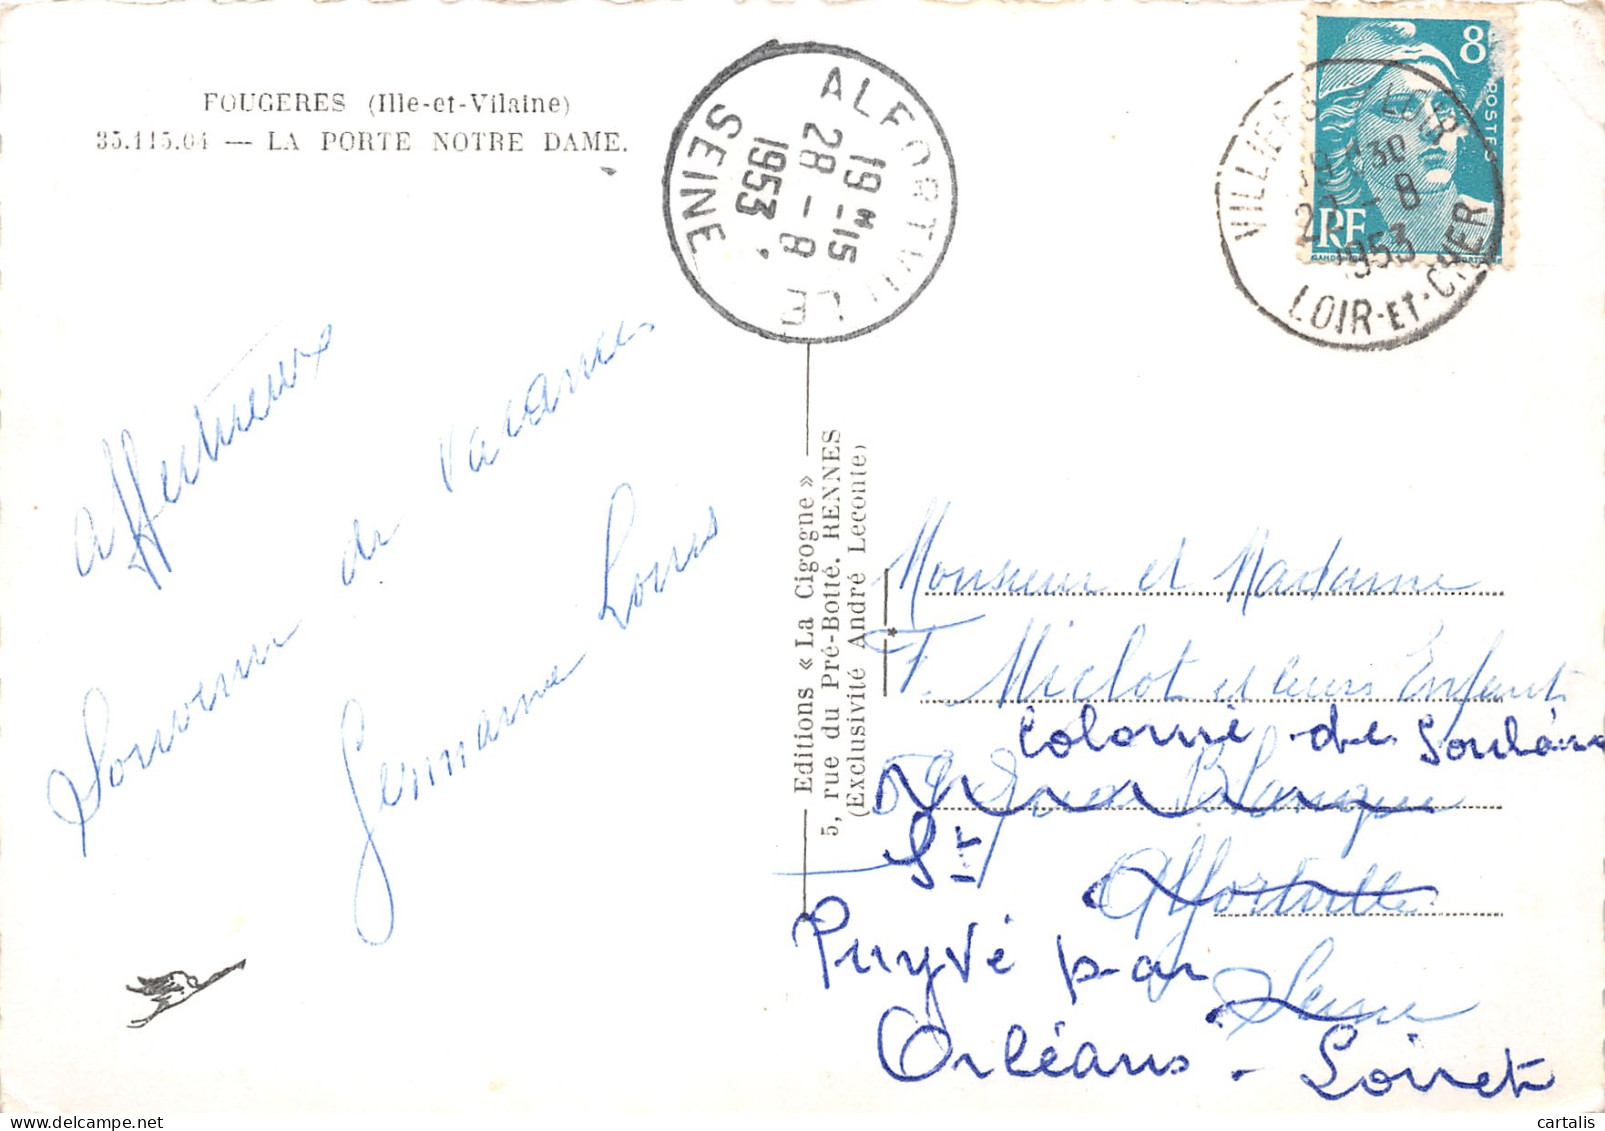 FOUGERES (Ille-et-Vilaine)
35.115.04 — LA PORTE NOTRE DAME.
ALFORTVILLE
19 H 15
28 - 8
1953
SEINE
8
POSTES
RF
VILLIERS LOIR
19 H 30
22 - 8
1953
LOIR-ET-CHER
affectueux
Souvenir de vacances
Germaine Louis
Editions « La Cigogne »
5, rue du Pré-Botté. RENNES
(Exclusivité André Leconte)
*
Monsieur et Madame
F. Miclot et leurs Enfants
Colonie de
Blanque
St
Alfortville
Puyvé par
Seine
Orléans - Loiret
cartalis